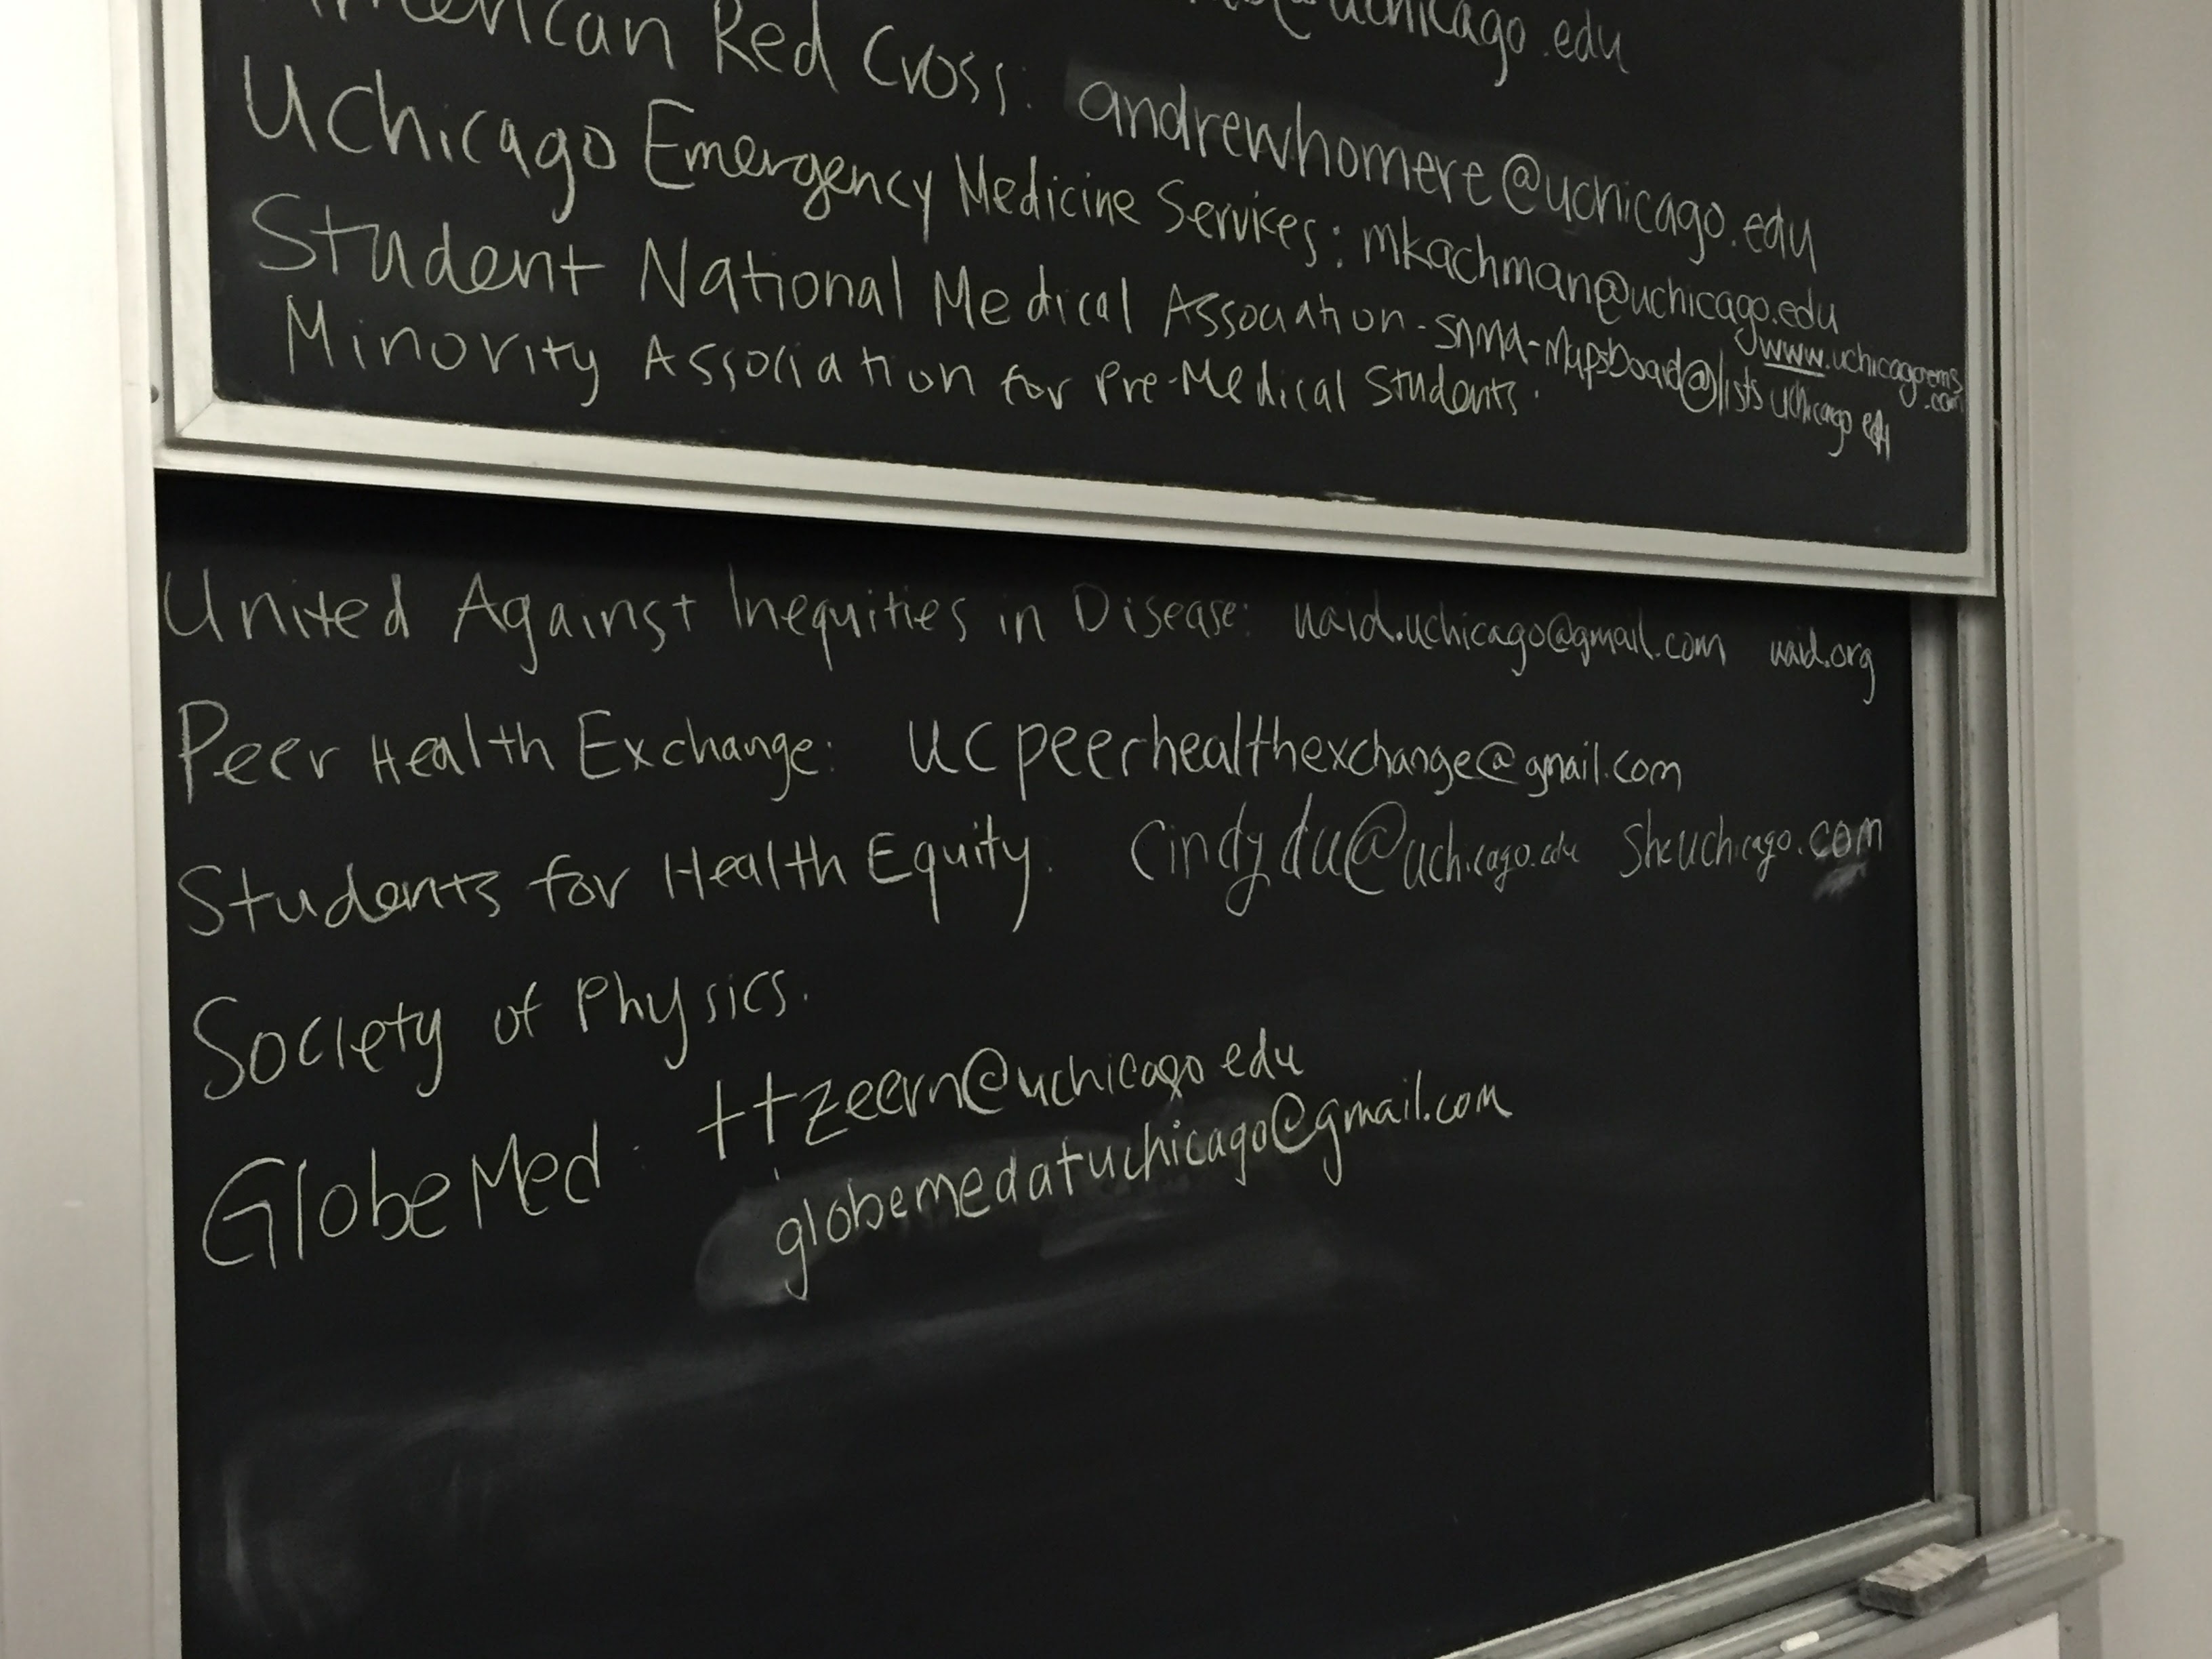 @uchicago.edu
American Red Cross: andrewhomere@uchicago.edu
UChicago Emergency Medicine Services: mkachman@uchicago.edu
www.uchicagoems.com
Student National Medical Association - SNMA-Mapsboard@lists uchicago edu
Minority Association for Pre-Medical Students.
United Against Inequities in Disease: uaid.uchicago@gmail.com uaid.org
Peer Health Exchange: ucpeerhealthexchange@gmail.com
Students for Health Equity. Cindydu@uchicago.edu sheuchicago.com
Society of Physics.
GlobeMed. ttzeern@uchicago edu
globemedatuchicago@gmail.com